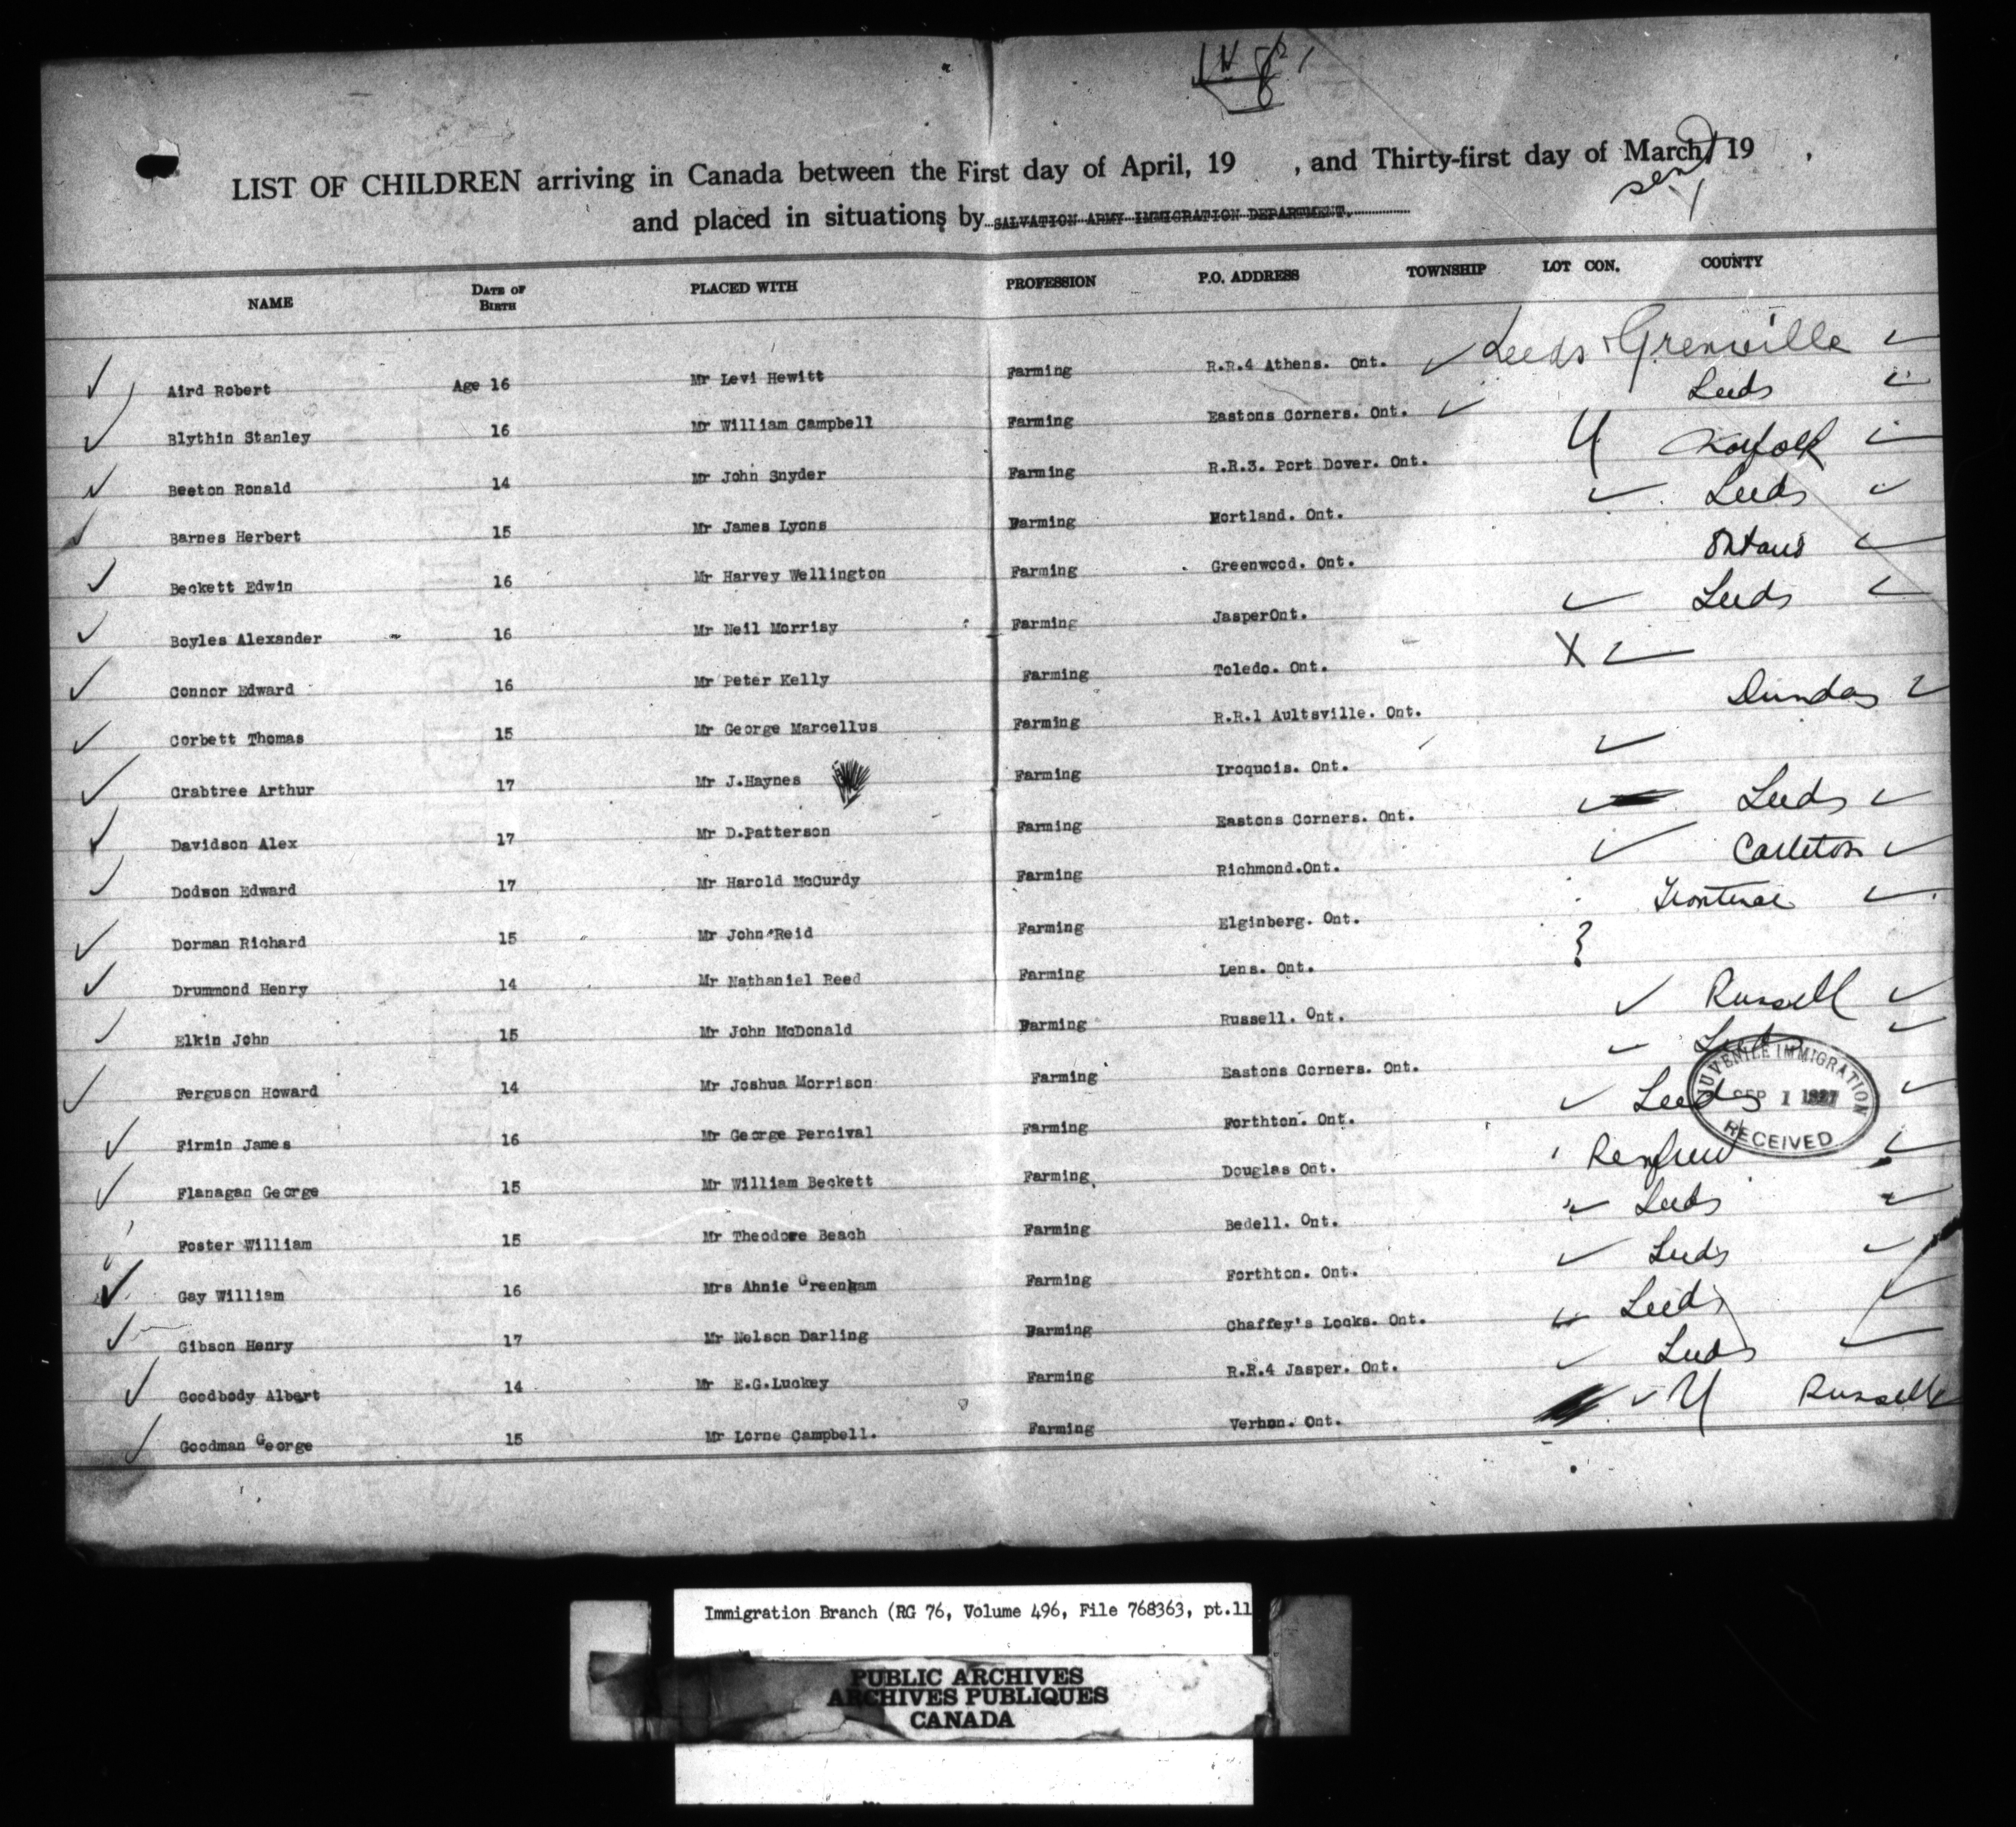 LIST OF CHILDREN arriving in Canada between the First day of April, 19 , and Thirty-first day of March, 19 ,
and placed in situations by SALVATION ARMY IMMIGRATION DEPARTMENT.
NAME DATE OF BIRTH PLACED WITH PROFESSION P.O. ADDRESS TOWNSHIP LOT CON. COUNTY
Aird Robert Age 16 Mr Levi Hewitt Farming R.R.4 Athens. Ont. Leeds & Grenville
Blythin Stanley 16 Mr William Campbell Farming Eastons Corners. Ont. Leeds
Beeton Ronald 14 Mr John Snyder Farming R.R.3. Port Dover. Ont. Norfolk
Barnes Herbert 15 Mr James Lyons Farming Portland. Ont. Leeds
Beckett Edwin 16 Mr Harvey Wellington Farming Greenwood. Ont. Ontario
Boyles Alexander 16 Mr Neil Morrisy Farming JasperOnt. Leeds
Connor Edward 16 Mr Peter Kelly Farming Toledo. Ont. X
Corbett Thomas 15 Mr George Marcellus Farming R.R.1 Aultsville. Ont. Dundas
Crabtree Arthur 17 Mr J.Haynes Farming Iroquois. Ont.
Davidson Alex 17 Mr D.Patterson Farming Eastons Corners. Ont. Leeds
Dodson Edward 17 Mr Harold McCurdy Farming Richmond.Ont. Carleton
Dorman Richard 15 Mr John Reid Farming Elginberg. Ont. Frontenac
Drummond Henry 14 Mr Nathaniel Reed Farming Lens. Ont. ?
Elkin John 15 Mr John McDonald Farming Russell. Ont. Russell
Ferguson Howard 14 Mr Joshua Morrison Farming Eastons Corners. Ont. Leeds
Firmin James 16 Mr George Percival Farming Forthton. Ont. Leeds
Flanagan George 15 Mr William Beckett Farming Douglas Ont. Renfrew
Foster William 15 Mr Theodore Beach Farming Bedell. Ont. Leeds
Gay William 16 Mrs Annie Greenham Farming Forthton. Ont. Leeds
Gibson Henry 17 Mr Nelson Darling Farming Chaffey's Locks. Ont. Leeds
Goodbody Albert 14 Mr E.G.Luckey Farming R.R.4 Jasper. Ont. Leeds
Goodman George 15 Mr Lorne Campbell. Farming Vernon. Ont. Russell
JUVENILE IMMIGRATION
SEP 1 1927
RECEIVED
Immigration Branch (RG 76, Volume 496, File 768363, pt.11
PUBLIC ARCHIVES
ARCHIVES PUBLIQUES
CANADA